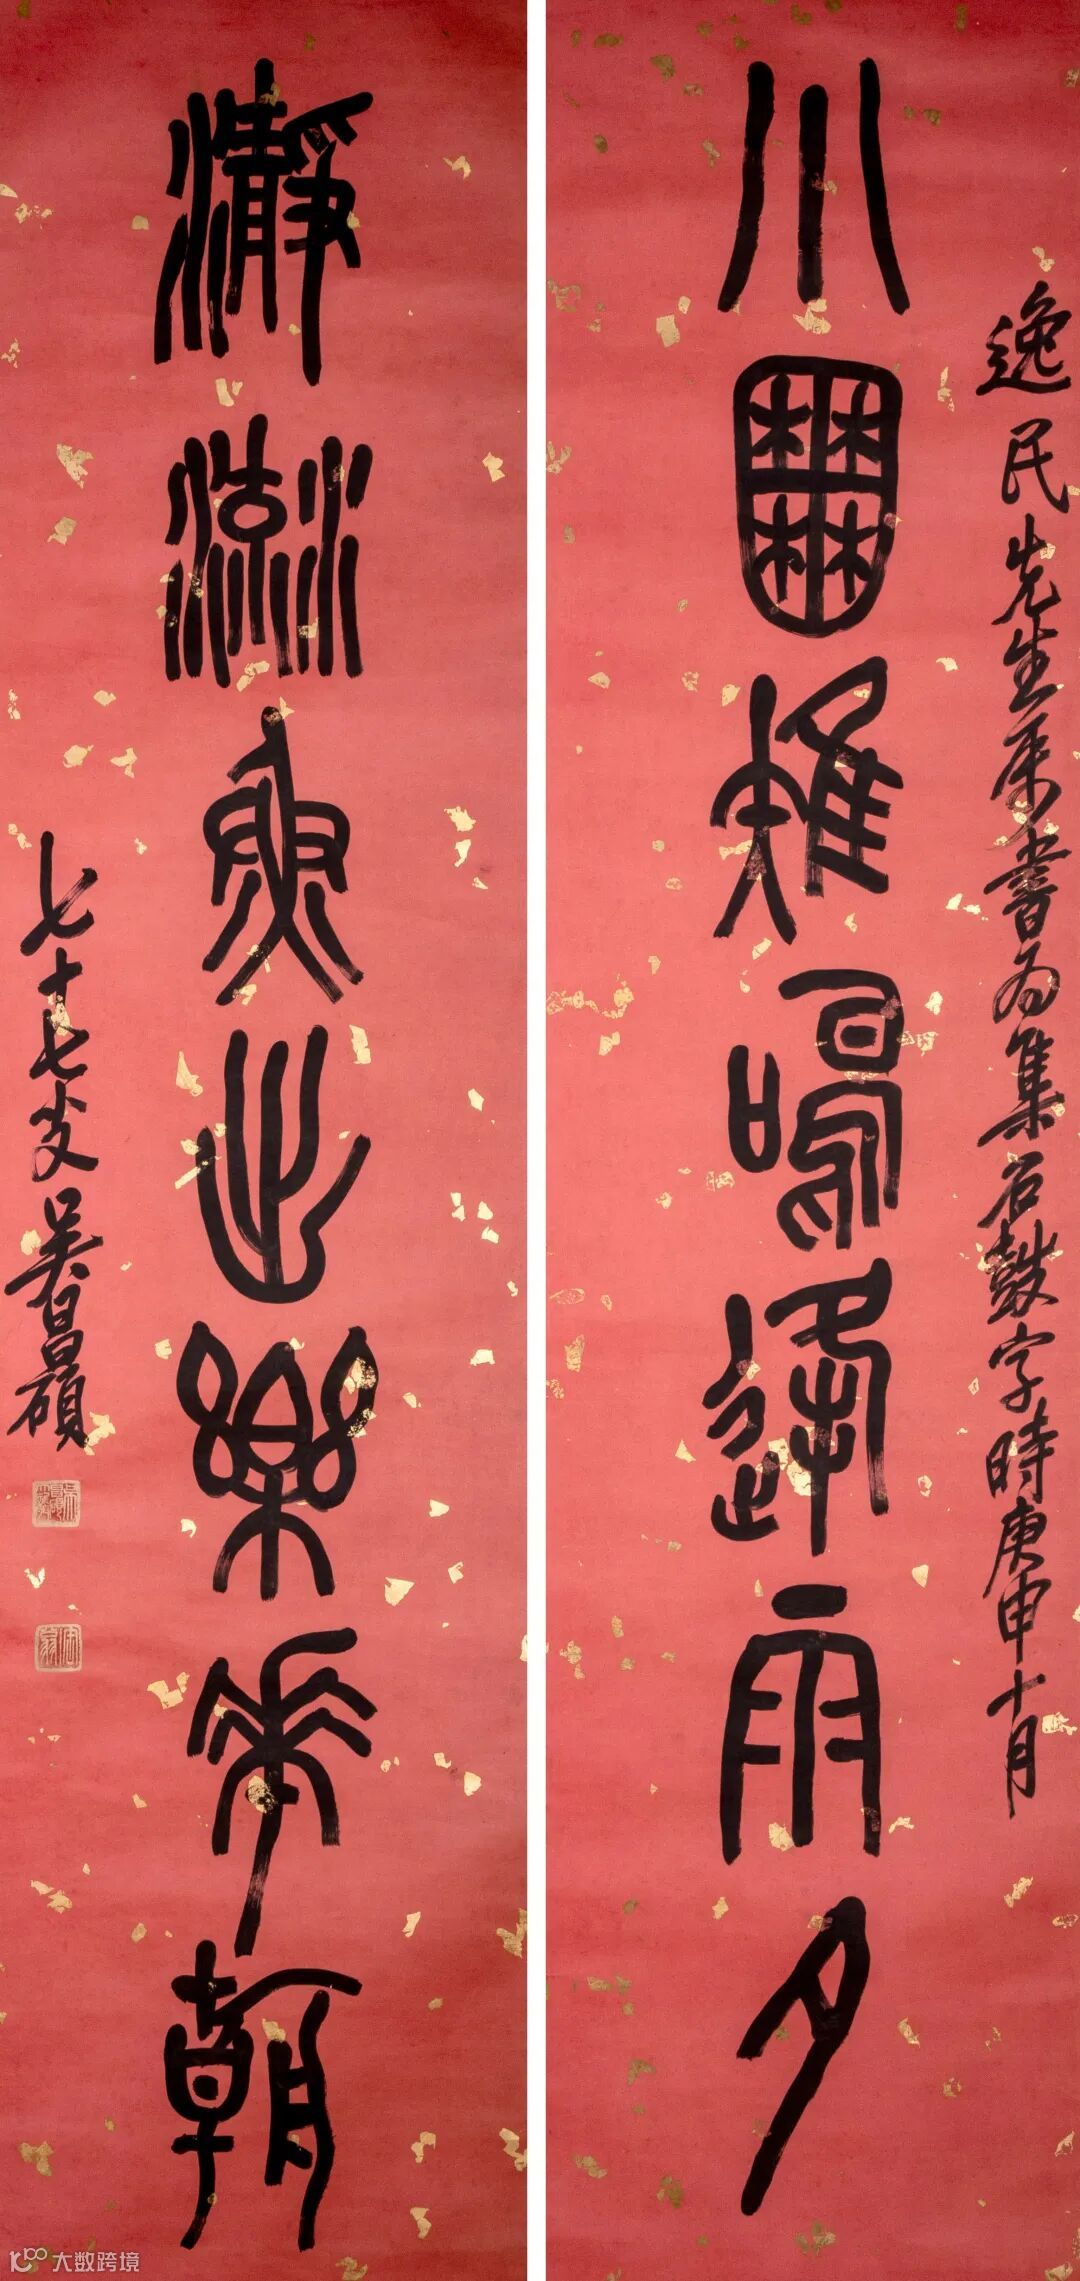 小囿雉鳴逢雨夕
逸民先生属書為集石鼓字時庚申十月
瀞流魚出樂華朝
七十七叟吳昌碩
大数跨境